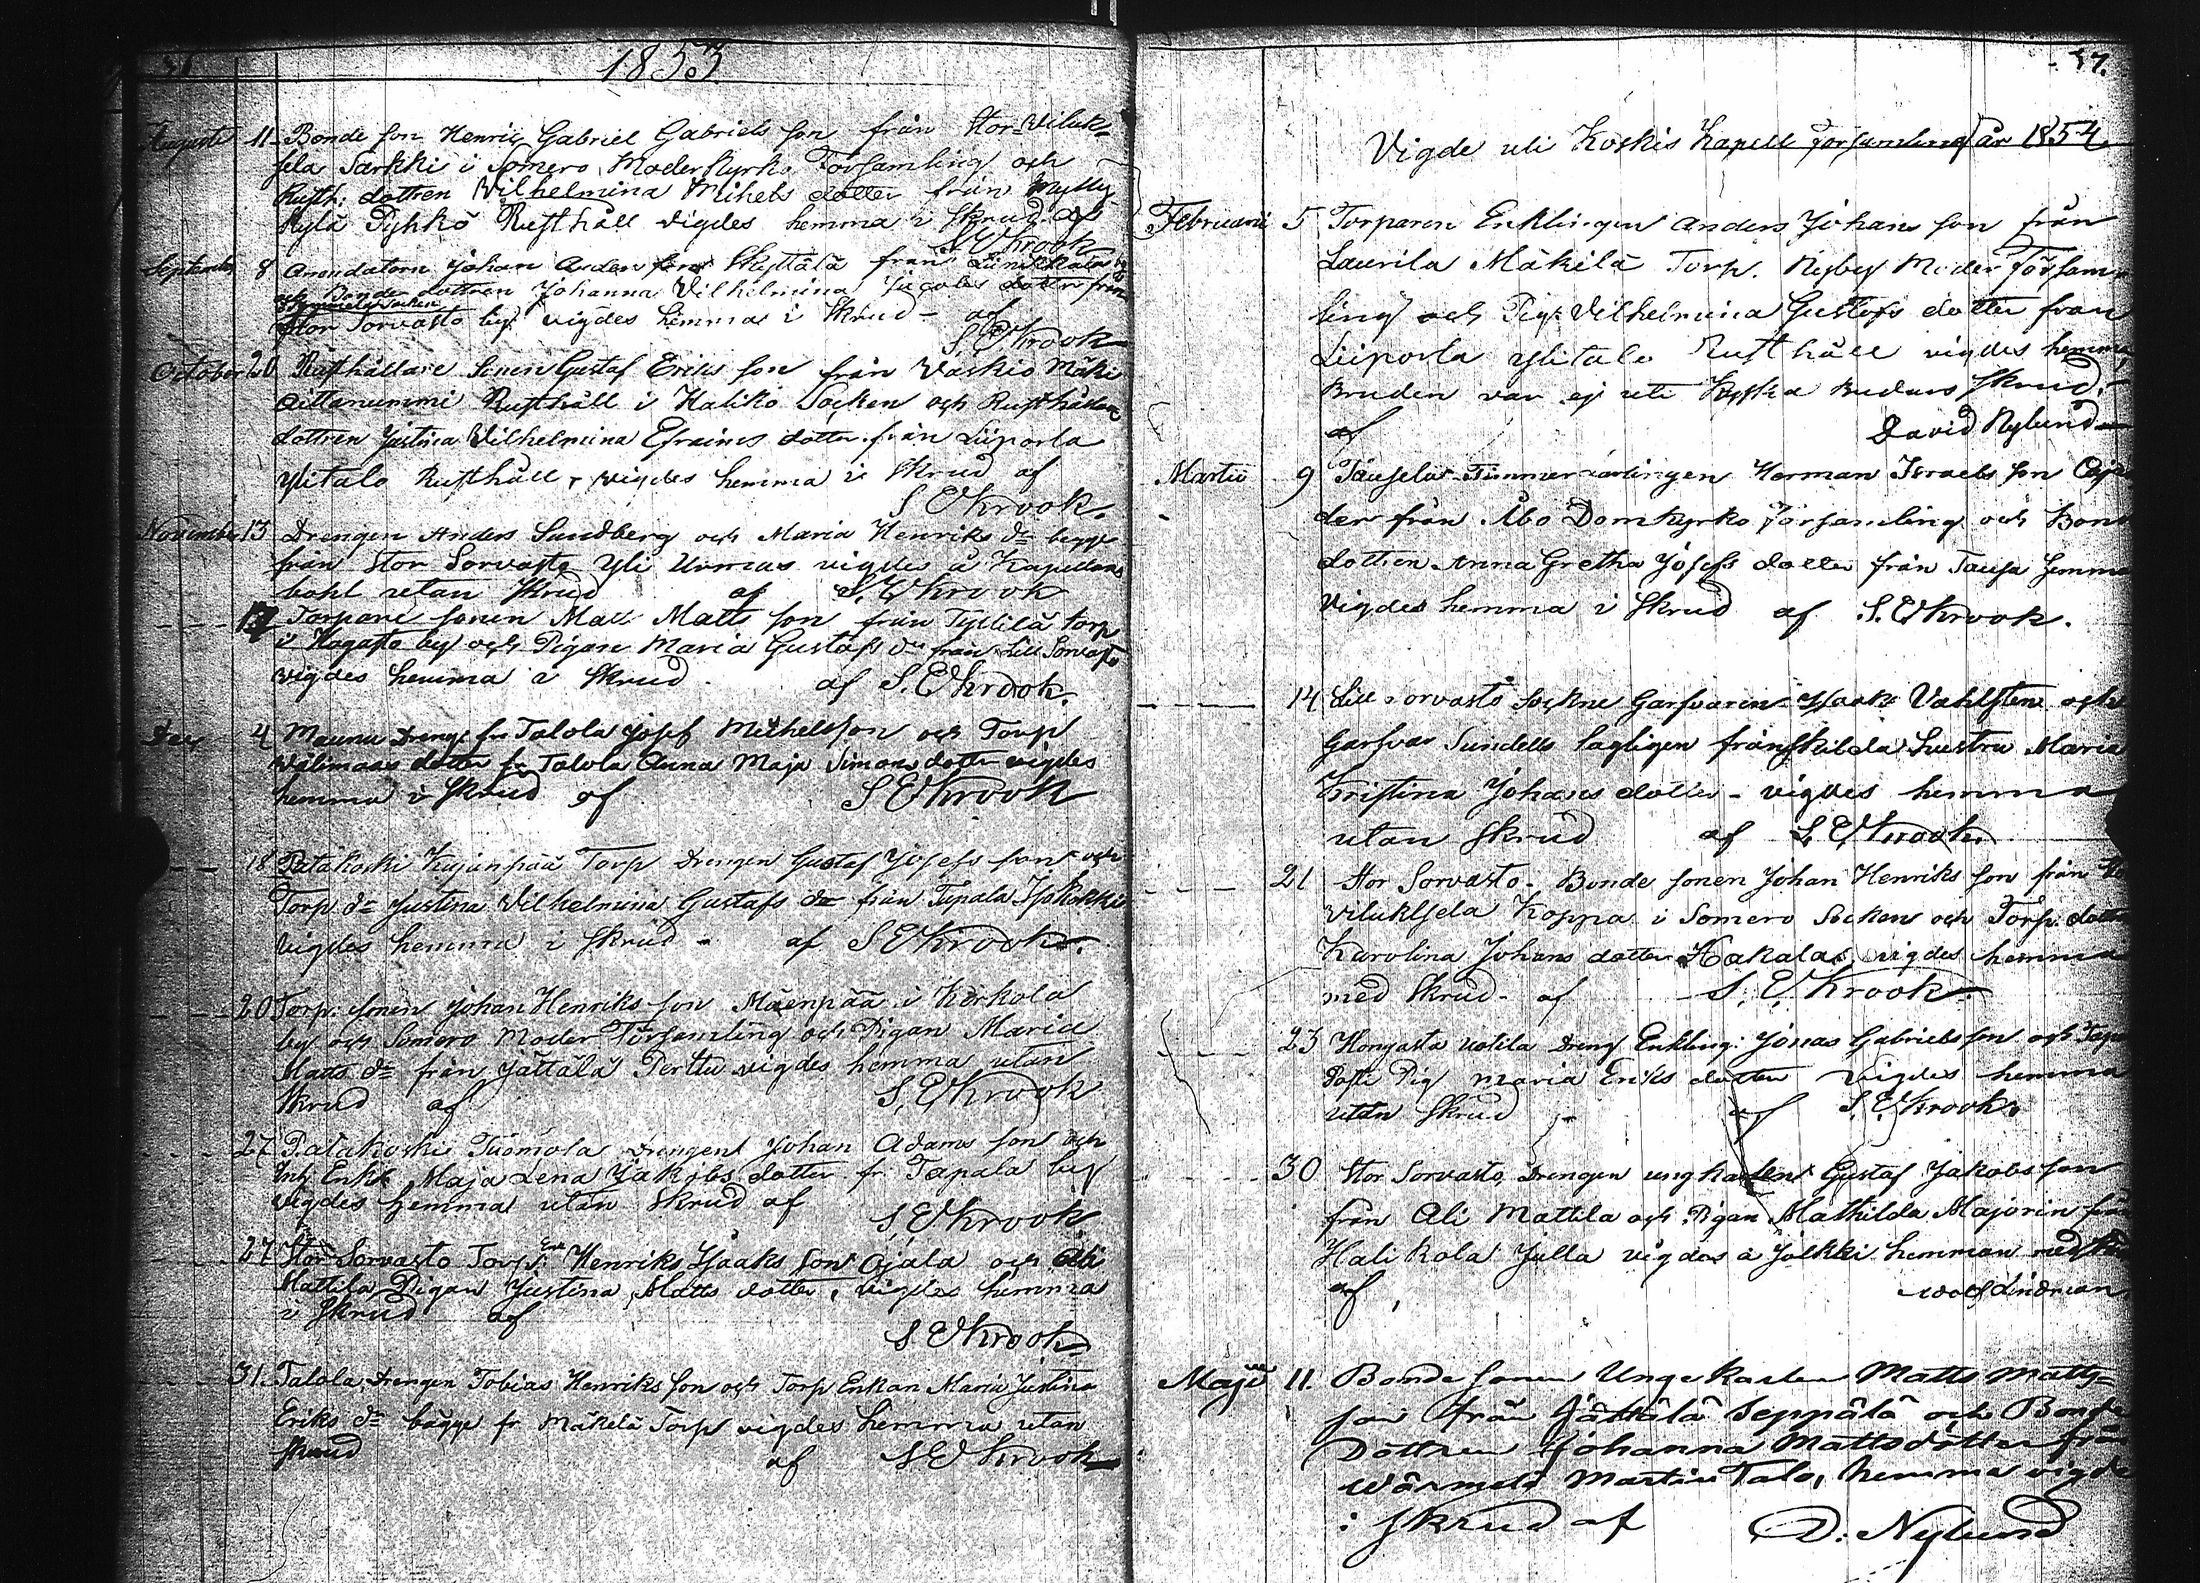 1853
Augusti 11 Bonde son Henric Gabriel Gabriels son från Stor Viluk-
sela Sarkki i Somero Moderkyrko Församling och
Rusth: dottren Vilhelmina Mihels dotter från Mylly
Kylä Pyhkö Rusthåll vigdes hemma i skrud af
S. E. Krook
September 8 Arendatorn Johan Arden Skyttälä från
och Bonde dottren Johanna Vilhelmina Jacobs dotter från
Stor Sorvasto by vigdes hemma i skrud - af
S E Krook
October 20 Rusthållare Sonen Gustaf Eriks son från Vaskio Mäki
Aittanummi Rusthåll i Haliko Socken och Rusthållare
dottren Justina Vilhelmina Efraims dotter från Liiporla
Ylitalo Rusthåll, vigdes hemma i skrud af
S E Krook.
November 13 Drengen Anders Sundberg och Maria Henriks dr begge
från Stor Sorvasto Yli Urmas vigdes å Kapellans
bohl utan skrud af S. E Krook
Torpare sonen Matts Matts son från Tyllilä torp
i Hogasto by och Pigan Maria Gustafs dr från Lill Sorvasto
vigdes hemma i skrud af S. E Krook.
Dec 4 Maunu Dreng fr Talola Josef Michelsson och Torp
Välimaas dotter fr Talola Anna Maja Simons dotter vigdes
hemma i skrud af S E Krook
18 Patakoski Kujanpää Torp Drengen Gustaf Josefs son och
Torp dr Justina Vilhelmina Gustafs dr från Tapala Isokokki
vigdes hemma i skrud - af S E Krook.
20 Torp. sonen Johan Henriks son Mäenpää i Kerkola
by och Somero Moder Församling och Pigan Maria
Matts dr från Jättälä Perttu vigdes hemma utan
skrud af S. E Krook
27 Patakoski Tuomola Drengen Johan Adams son och
Inh Enkk Maja Lena Jakobs dotter fr Tapala by
vigdes hemma utan skrud af
S. E Krook
27 Stor Sorvasto Torp: Enk Henriks Isaaks son Ojala och Ali
Mattila Pigan Justina Matts dotter, vigdes hemma
i skrud af
S E Krook
31. Talola, Drengen Tobias Henriks son och Torp Enkan Maria Justina
Eriks dr bägge fr Mäkelä Torp vigdes hemma utan
skrud af S E Krook
57.
Vigde uti Koskis Kapell församling år 1854.
Februarii 5 Torparen Enklingen Anders Johans son från
Laurila Mäkilä Torp. Nyby Moder församm
ling och Pig: Vilhelmina Gustafs dotter från
Liiporla Ylitalo Rusthåll vigdes hemma,
Bruden var ej uti kyska brudars skrud.
af David Nylund
Martii 9 Timmer Herman Israels son
der från Åbo Domkyrko församling och Bond
dottren Anna Gretha Josefs dotter från
vigdes hemma i skrud af S. E Krook.
14 Lill Sorvasto Sockne Garfvaren Isaak Vahlsten och
Garfvar Sundells lagligen frånskilda hustru Maria
Kristina Johans dotter - vigdes hemma
utan skrud af S. E Krook
21 Stor Sorvasto - Bonde sonen Johan Henriks son från
Viluksela Koppa i Somero Socken och Torp. dotter
Karolina Johans dotter Hakala, vigdes hemma
med skrud - af S. E Krook
23 Hongasto Uotila Dreng Enkling: Jonas Gabriels son och
Pig Maria Eriks dotter vigdes hemma
utan skrud - af S. E Krook
30 Stor Sorvasto, Drengen ungkarlen Gustaf Jakobs son
från Ali Mattila och Pigan Mathilda Majorin från
Hali kola Julla vigdes å Jälkki hemman
af Lindman
Maji 11. Bonde sonen Unge karlen Matts Matts-
son från Jättälä Seppälä och Bonde
Dottren Johanna Mattsdotter från
Wärmelä Martin Talo, hemma vigde
i skrud af D. Nylund